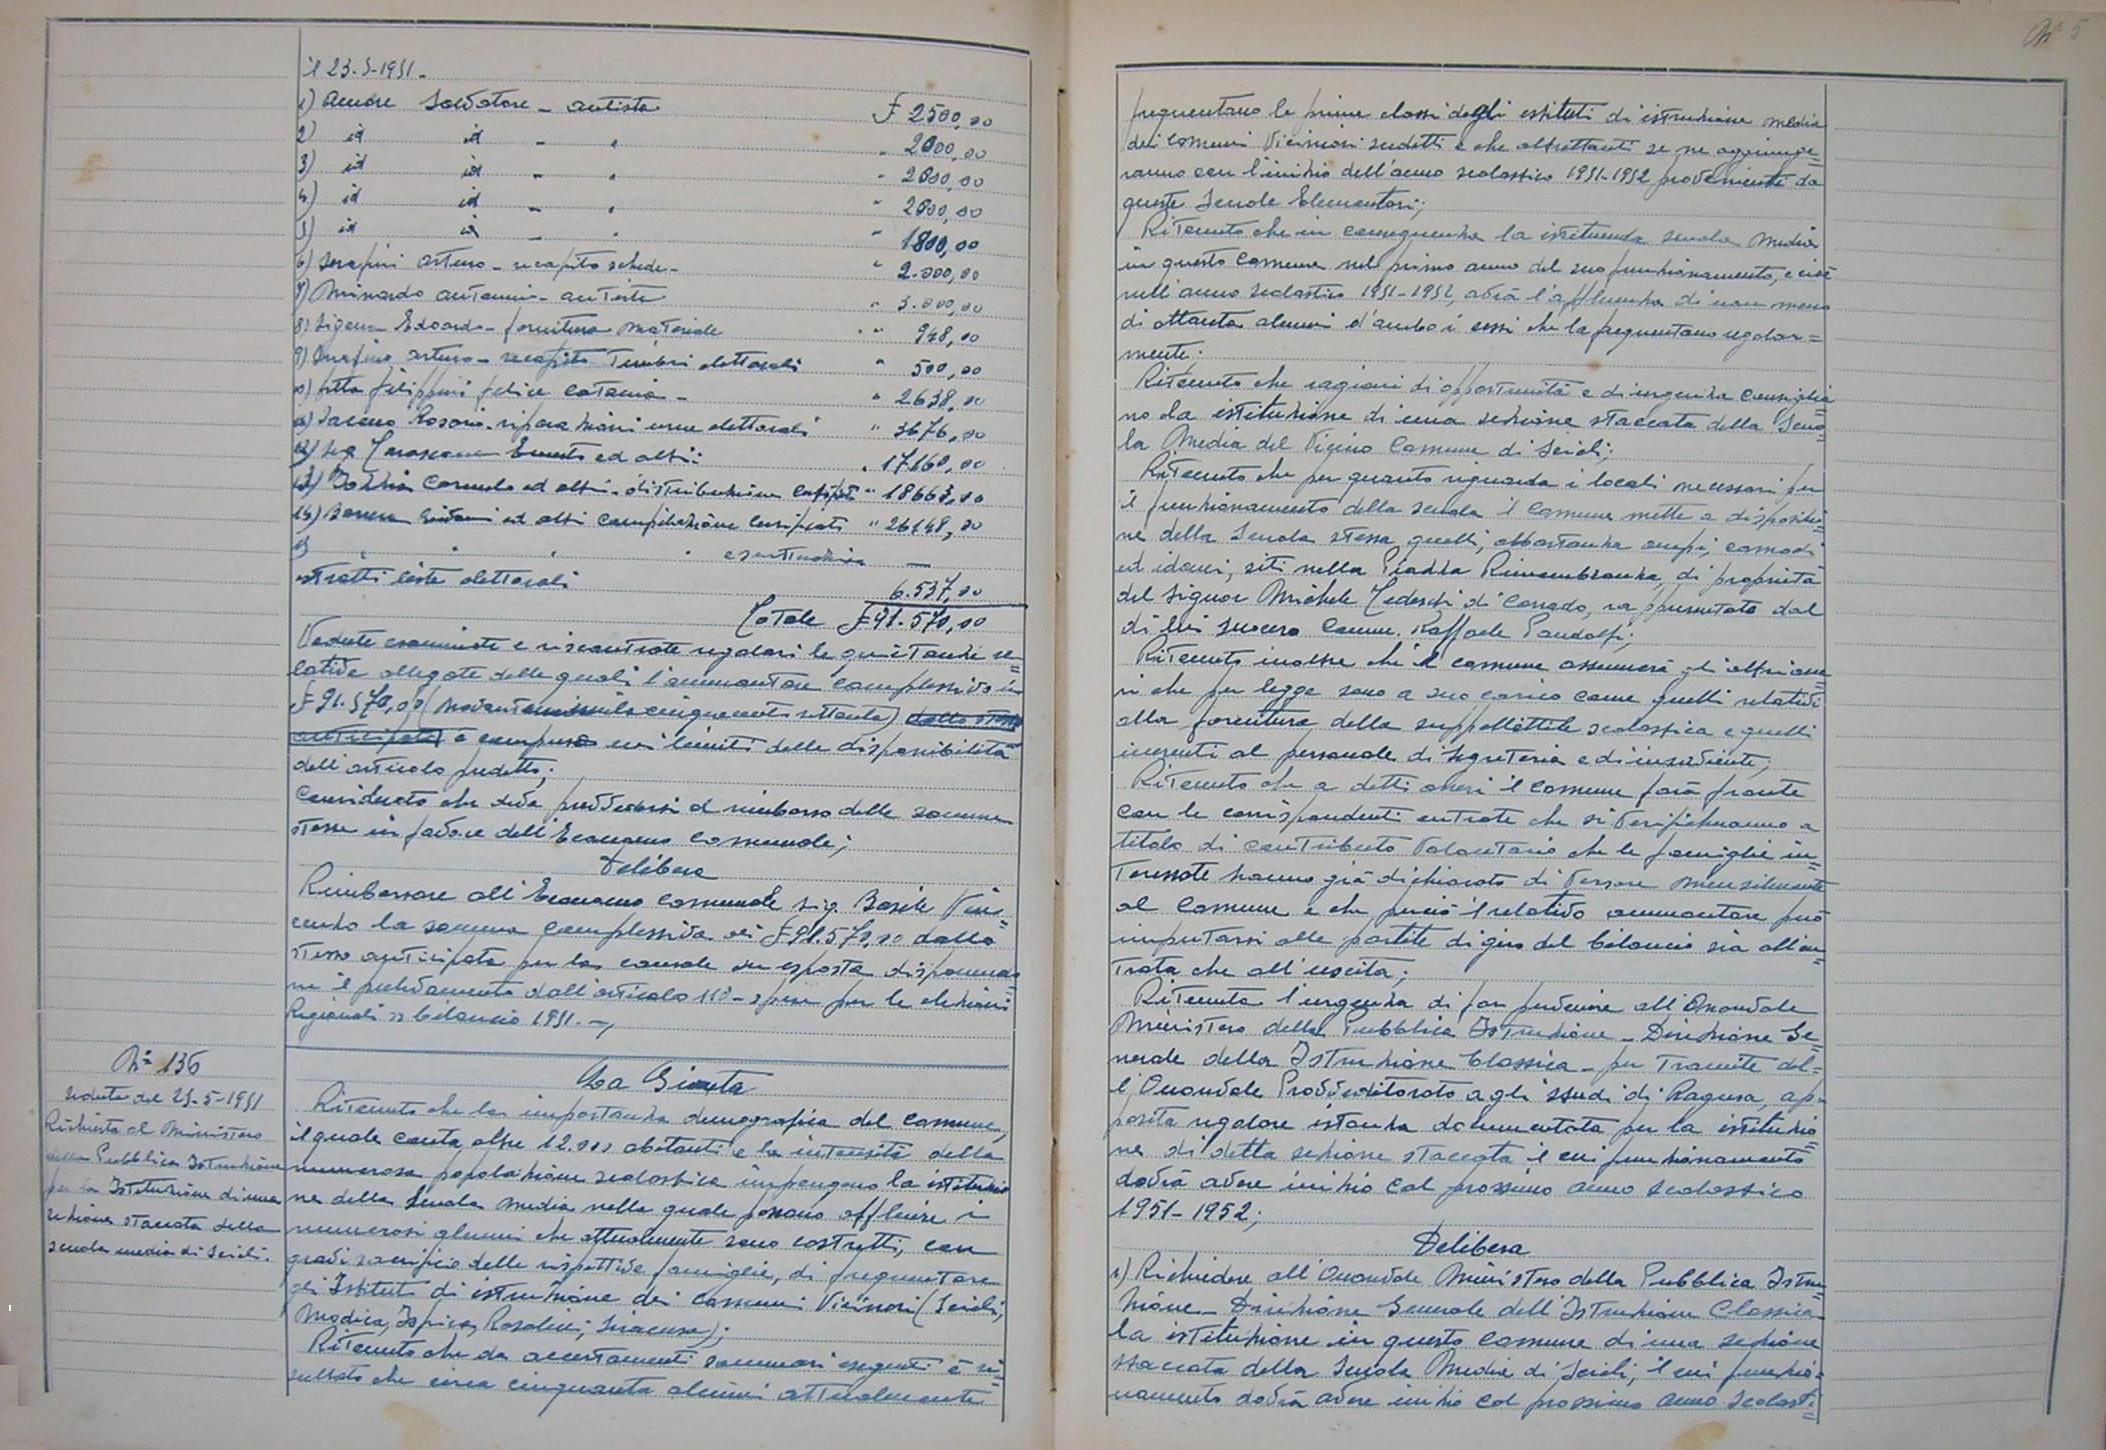 il 23-5-1951-
1) Amore Salvatore - autista £ 2500,00
2) id id - " " 2000,00
3) id id - " " 2000,00
4) id id - " " 2000,00
5) id id - " " 1800,00
6) Serafini Arturo - recapito schede - " 2.000,00
7) Minardo Antonio - autista " 3.000,00
8) Edoardo - fornitura materiale " " 948,00
9) Arturo - recapito timbri elettorali " 500,00
10) Ditta Filippini Felice Catania - " 2638,00
11) Rosario - riparazioni urne elettorali " 3676,00
12) Sig. Ernesto ed altri: " 17160,00
13) Carmelo ed altri - distribuzione " 18663,00
14) ed altri compilazione certificati " 26148,00
15 " " " " e
estratti liste elettorali 6.537,00
Totale £ 91.570,00
Vedute esaminate e riscontrate regolari le quietanze re=
lative allegate delle quali l'ammontare complessivo in
£ 91.570,00 (novantunomila cinquecento settanta) dallo stesso
anticipata è compreso nei limiti delle disponibilità
dell'articolo predetto;
Considerato che deve provvedersi al rimborso delle somme
stesse in favore dell'Economo Comunale;
Delibera
Rimborsare all'Economo Comunale Sig. Basile Vin=
cenzo la somma complessiva di £ 91.570,00 dallo
stesso anticipata per la causale su esposta disponendo=
ne il prelevamento dall'articolo 110 - spese per le elezioni
Regionali » bilancio 1951. -
N° 136
seduta del 25-5-1951
Richiesta al Ministero
della Pubblica Istruzione
per la Istituzione di una
sezione staccata della
scuola media di Scicli.
La Giunta
Ritenuto che la importanza demografica del Comune,
il quale conta oltre 12.000 abitanti e la intensità della
numerosa popolazione scolastica impongono la istituzio
ne della Scuola Media nella quale possano affluire i
numerosi alunni che attualmente sono costretti, con
gravi sacrifici delle rispettive famiglie, di frequentare
gli Istituti di istruzione dei Comuni Viciniori (Scicli,
Modica, Ispica, Rosolini, Siracusa);
Ritenuto che da accertamenti sommari eseguiti è ri=
sultato che circa cinquanta alunni attualmente
N° 5
frequentano le prime classi degli istituti di istruzione media
dei Comuni Viciniori sudetti e che altrettanti se ne aggiunge=
ranno con l'inizio dell'anno scolastico 1951-1952 provenienti da
queste Scuole Elementari;
Ritenuto che in conseguenza la istituenda Scuola Media
in questo Comune nel primo anno del suo funzionamento, e cioè
nell'anno scolastico 1951-1952, avrà l'affluenza di non meno
di ottanta alunni d'ambo i sessi che la frequentano regolar=
mente;
Ritenuto che ragioni di opportunità e di urgenza consiglia=
no la istituzione di una sezione staccata della Scuo=
la Media del Vicino Comune di Scicli;
Ritenuto che per quanto riguarda i locali necessari per
il funzionamento della scuola il Comune mette a disposizio=
ne della Scuola stessa quelli, abbastanza ampi, comodi
ed idonei, siti nella Piazza Rimembranza, di proprietà
del Signor Michele Tedeschi di Corrado, rappresentato dal
di lui suocero Comm. Raffaele Pandolfi;
Ritenuto inoltre che il Comune assumerà gli altri one=
ri che per legge sono a suo carico come quelli relativi
alla fornitura della suppellettile scolastica e quelli
inerenti al personale di Segreteria e di inserviente;
Ritenuto che a detti oneri il Comune farà fronte
con le corrispondenti entrate che si verificheranno a
titolo di contributo volontario che le famiglie in=
teressate hanno già dichiarato di versare mensilmente
al Comune e che perciò il relativo ammontare può
imputarsi alle partite di giro del bilancio sia all'en=
trata che all'uscita;
Ritenuta l'urgenza di far pervenire all'Onorevole
Ministero della Pubblica Istruzione - Direzione Ge=
nerale della Istruzione Classica - per tramite del=
l'Onorevole Provveditorato agli Studi di Ragusa, ap=
posita regolare istanza documentata per la istituzio=
ne di detta sezione staccata il cui funzionamento
dovrà avere inizio col prossimo anno scolastico
1951-1952;
Delibera
1) Richiedere all'Onorevole Ministero della Pubblica Istru=
zione - Direzione Generale dell'Istruzione Classica
la istituzione in questo Comune di una sezione
staccata della Scuola Media di Scicli, il cui funzio=
namento dovrà avere inizio col prossimo anno scolasti=